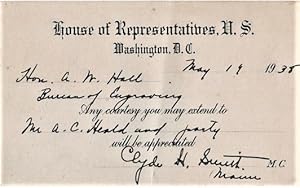 House of Representatives, U. S.
Washington, D. C.
May 19 1938
Hon. A. W. Hall
Bureau of Engraving
Any courtesy you may extend to
Mr A. C. Heald and party
will be appreciated
Clyde H. Smith M. C.
Maine